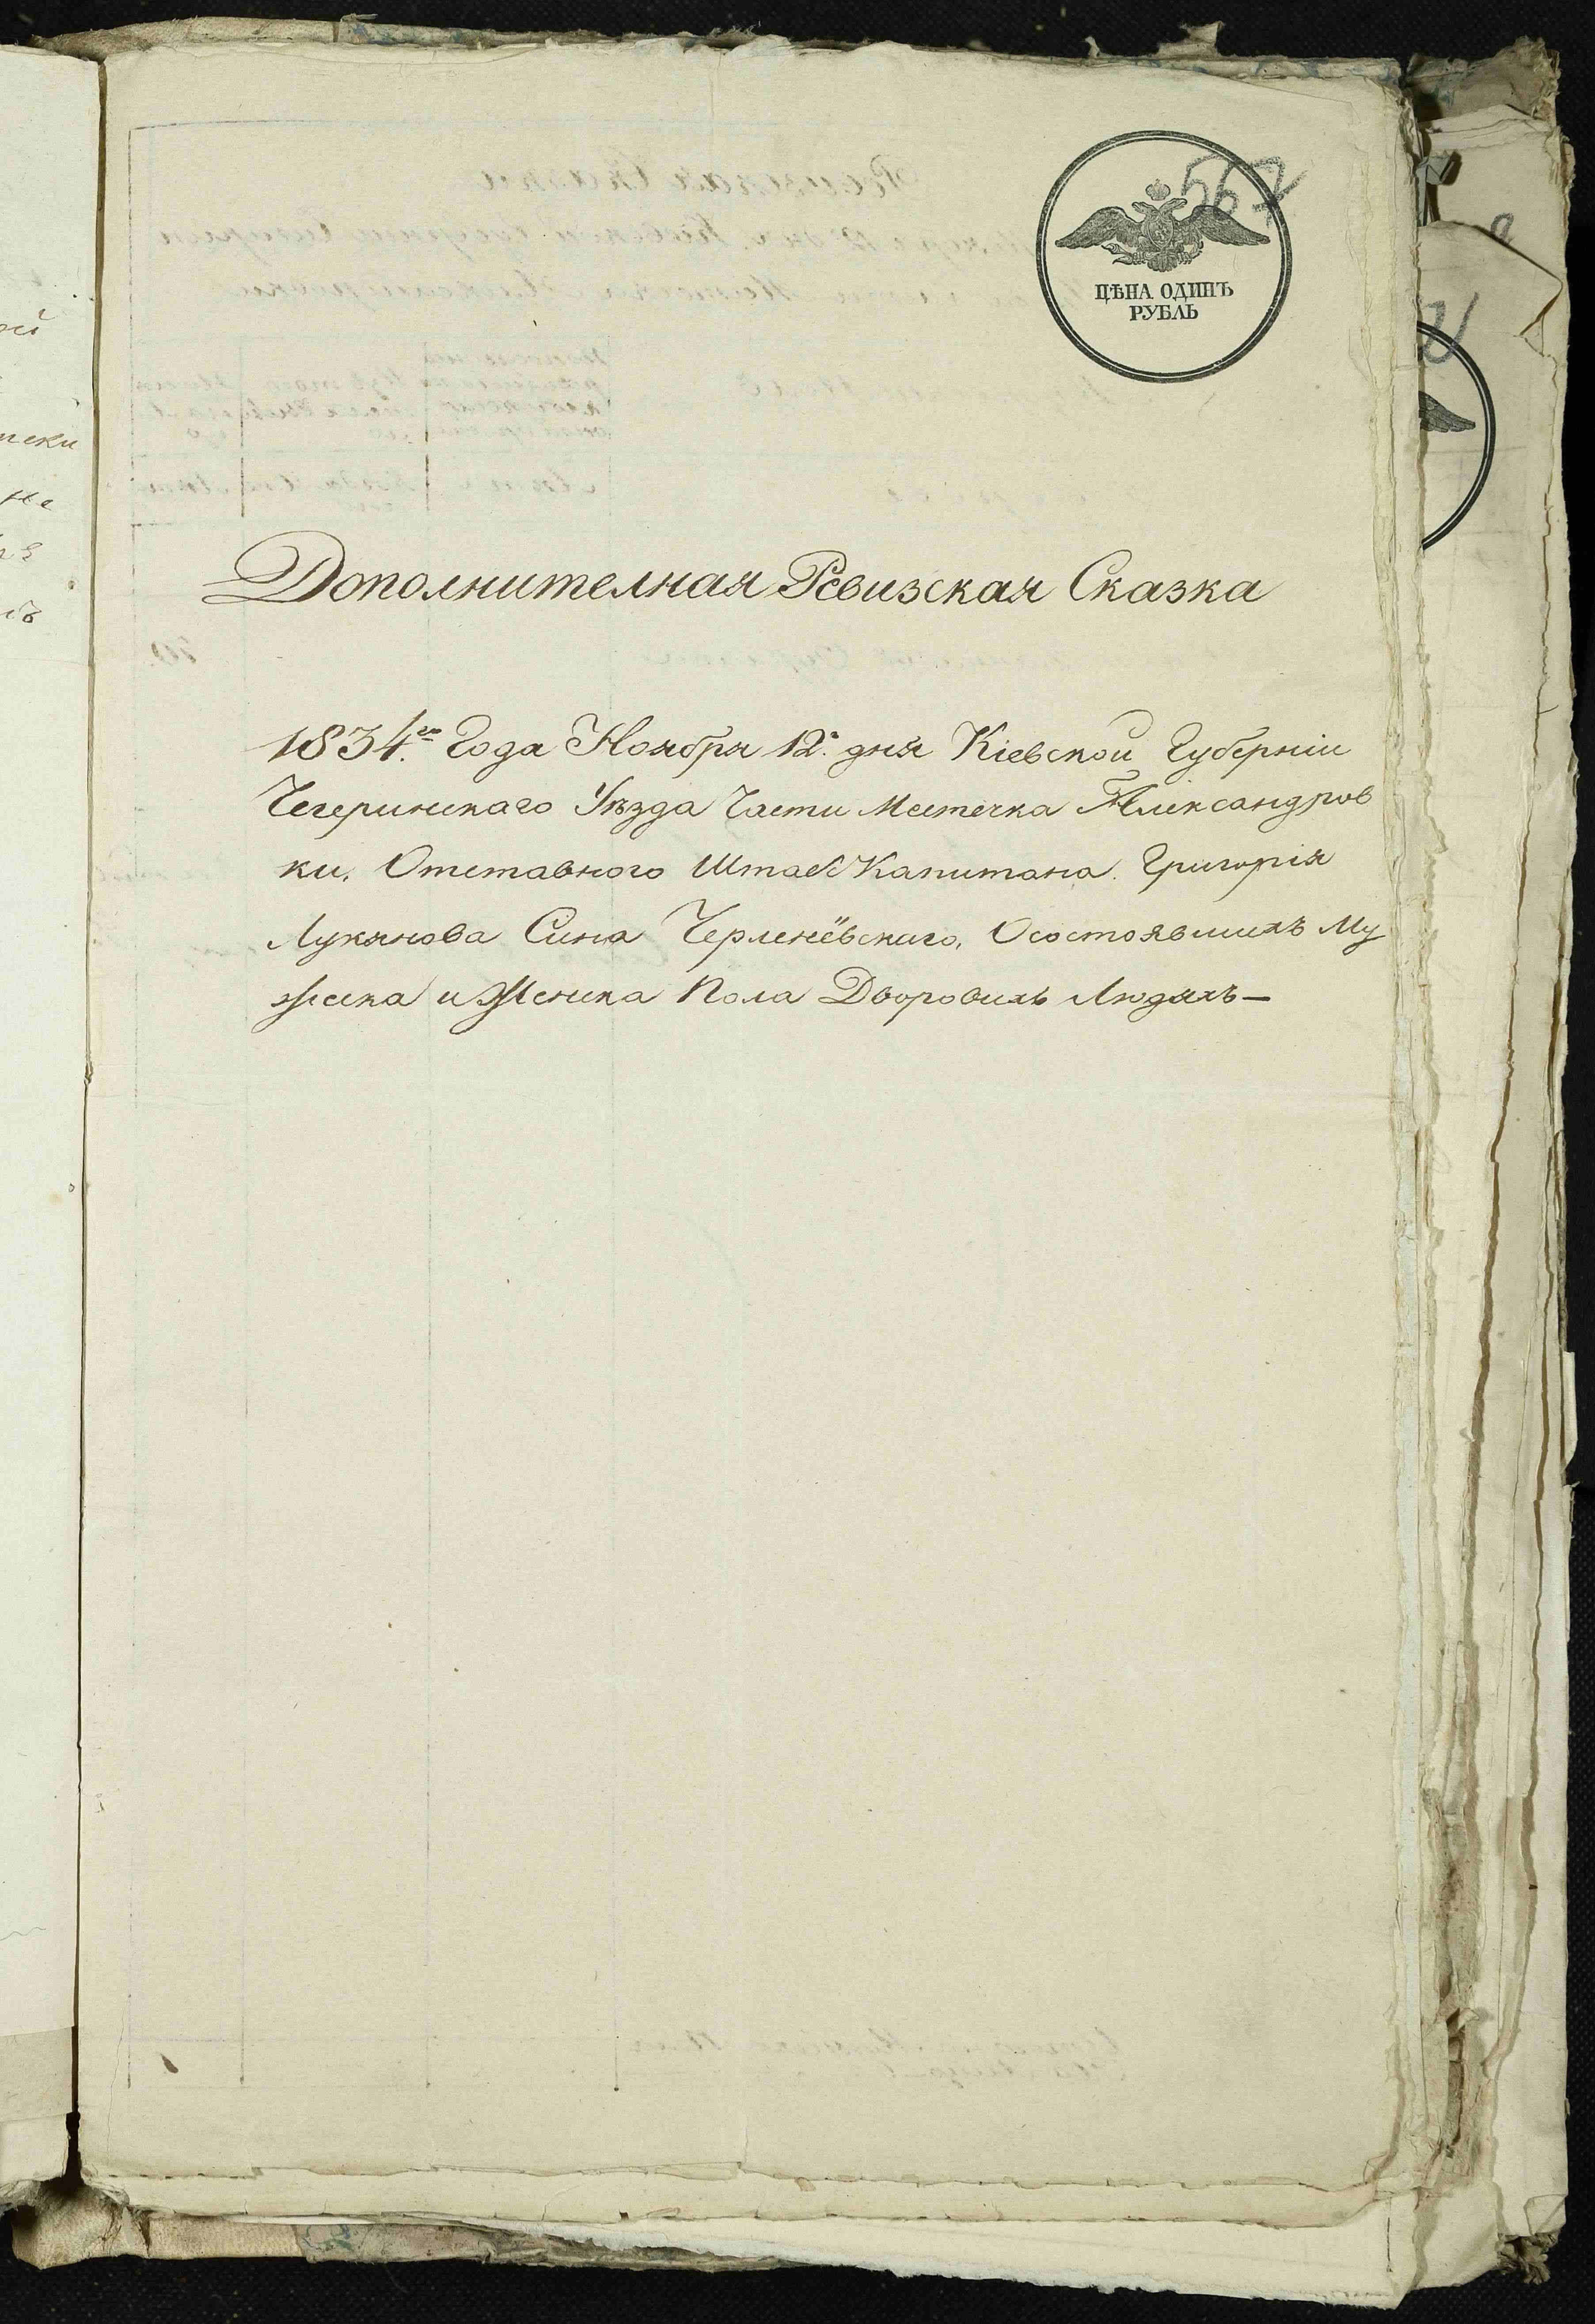 567
ЦѢНА ОДИНЪ
РУБЛЬ
Дополнителная Ревизская Сказка
1834.го Года Ноября 12.го дня Кіевской Губерніи
Чегеринскаго Уѣзда Части Местечка Александров
ки, Отставного Штабс Капитана Григорія
Лукянова Сина Черленёвскаго, Осостоявшихъ Му
жеска и Женска Пола Дворовихъ Людяхъ —